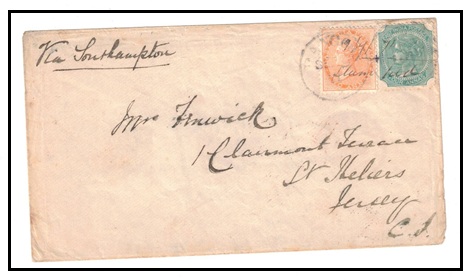 Via Southampton
Stamp
Mrs Fenwick
1 Clairmont Terrace
St Heliers
Jersey
C.I.